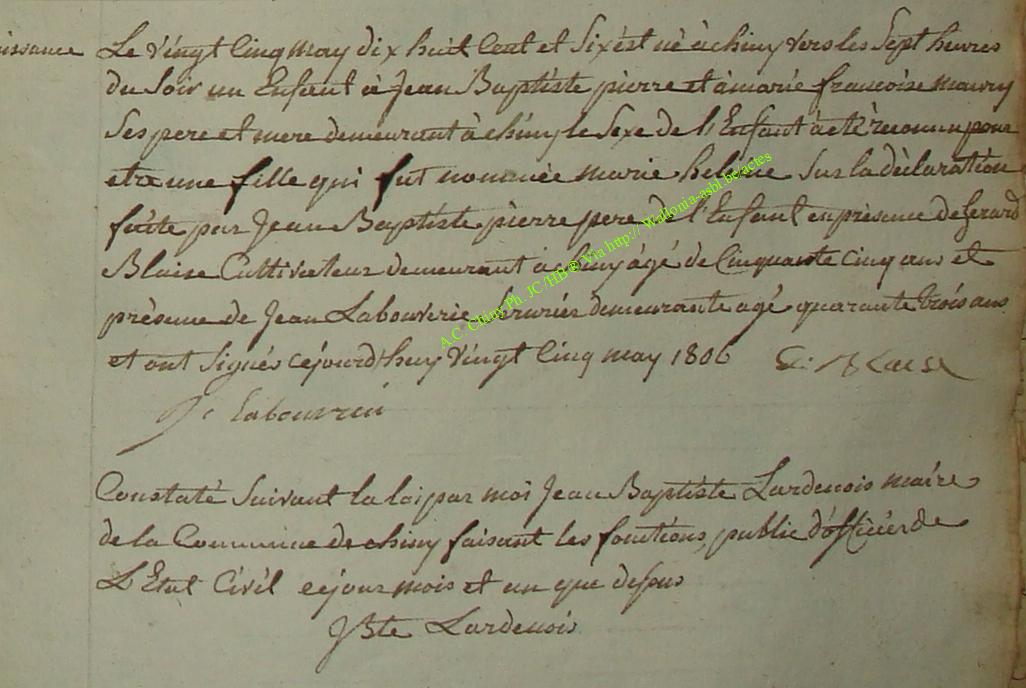 issance Le vingt cinq may dix huit cent et six est né à chiny vers les sept heures
du soir un Enfant à jean Baptiste pierre et à marie francoise maury
ses pere et mere demeurant à chiny le sexe de l'Enfant à été reconnu pour
etre une fille qui fut nommée marie heline sur la déclaration
faite par jean Baptiste pierre pere de l'Enfant en présence de Gerard
Blaise Cultivateur demeurant à chiny âgé de Cinquante cinq ans et
présence de jean Labouverie demeurante agé quarante trois ans
et ont signés cejourd'huy vingt cinq may 1806 G: Blaise
J: labouverie
Constaté suivant la loi par moi jean Baptiste Lardenois maire
de la Commune de chiny faisant les fonctions public d'officier de
L'Etat Civil ce jour mois et an que dessus
JBte Lardenois
A.C. Chiny Ph. JC/HB® Via http:// Wallonia-asbl.be/actes